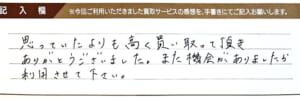 記入欄
※今回ご利用いただきました買取サービスの感想を、手書きにてご記入お願いします。
思っていたよりも高く買い取って頂き
ありがとうございました。また機会がありましたが
利用させて下さい。